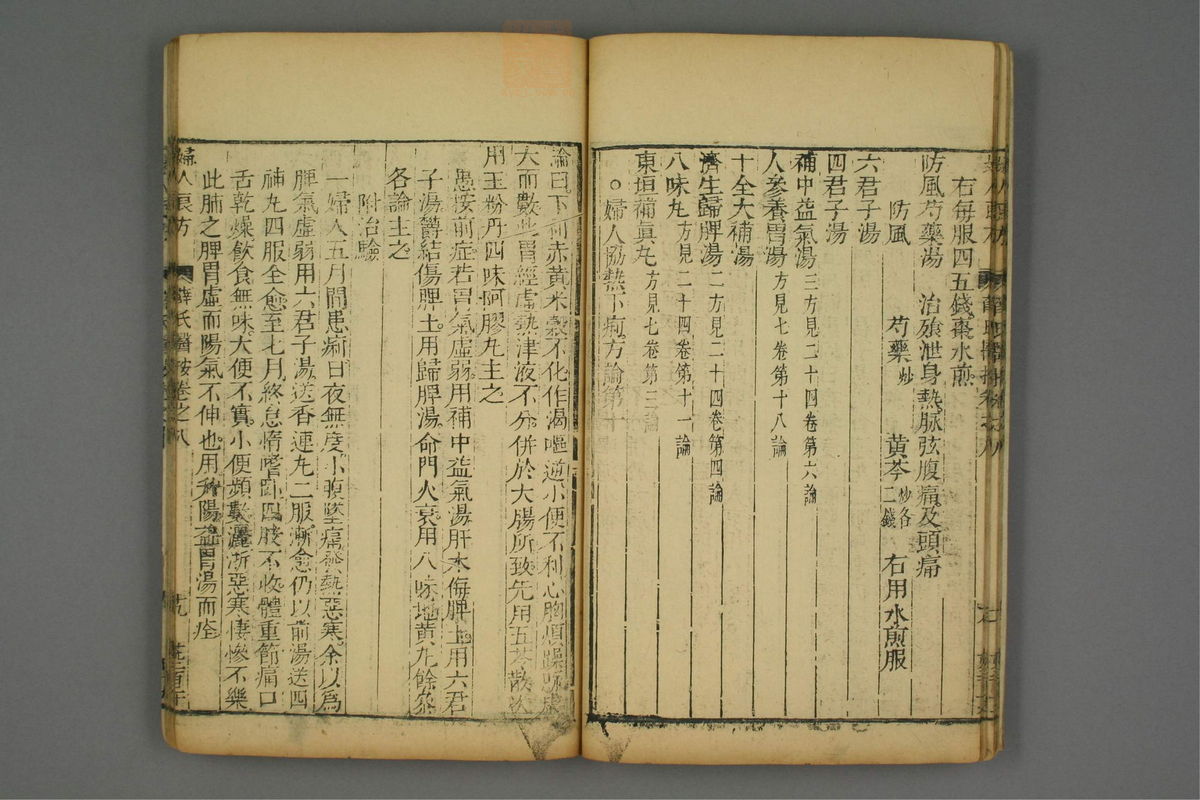 右每服四五錢棗水煎
防風芍藥湯 治飱泄身熱脉弦腹痛及頭痛
防風 芍藥炒 黃芩炒各二錢 右用水煎服
六君子湯
四君子湯
補中益氣湯三方見二十四卷第六論
人參養胃湯方見七卷第十八論
十全大補湯
濟生歸脾湯二方見二十四卷第四論
八味丸方見二十四卷第十一論
東垣補眞丸方見七卷第三論
○婦人協熱下痢方論第十
論曰下痢赤黃米穀不化作渴嘔逆小便不利心胸煩躁脉虛
大而數此胃經虛熱津液不分併於大腸所致先用五苓散次
用玉粉丹四味阿膠丸主之
愚按前症若胃氣虛弱用補中益氣湯肝木侮脾土用六君
子湯鬱結傷脾土用歸脾湯命門火衰用八味地黃丸餘叅
各論主之
附治驗
一婦人五月間患痢日夜無度小腹墜痛發熱惡寒余以爲
脾氣虛弱用六君子湯送香連丸二服漸愈仍以前湯送四
神丸四服全愈至七月終怠惰嗜臥四肢不收體重節痛口
舌乾燥飲食無味大便不實小便頻數灑淅惡寒悽慘不樂
此肺之脾胃虛而陽氣不伸也用升陽益胃湯而痊
婦人良方 薛氏醫按卷之八